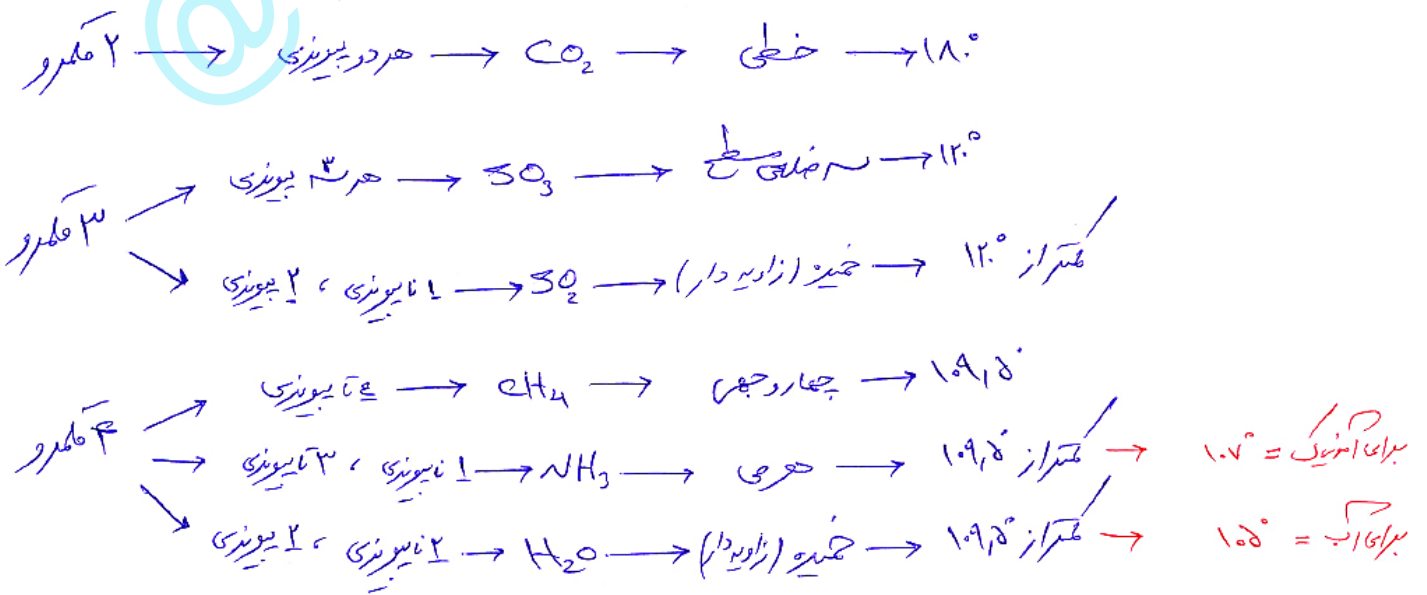 ۲ قلمرو → هر دو پیوندی → CO₂ → خطی → ۱۸۰°
۳ قلمرو → هر سه ۳ پیوندی → SO₃ → سه ضلعی مسطح → ۱۲۰°
→ ۱ ناپیوندی ، ۲ پیوندی → SO₂ → خمیده (زاویه دار) → کمتر از ۱۲۰°
۴ قلمرو → ۴ تا پیوندی → CH₄ → چهار وجهی → ۱۰۹,۵°
→ ۱ ناپیوندی ، ۳ تا پیوندی → NH₃ → هرمی → کمتر از ۱۰۹,۵° → برای آمونیاک = ۱۰۷°
→ ۲ ناپیوندی ، ۲ پیوندی → H₂O → خمیده (زاویه دار) → کمتر از ۱۰۹,۵° → برای آب = ۱۰۵°